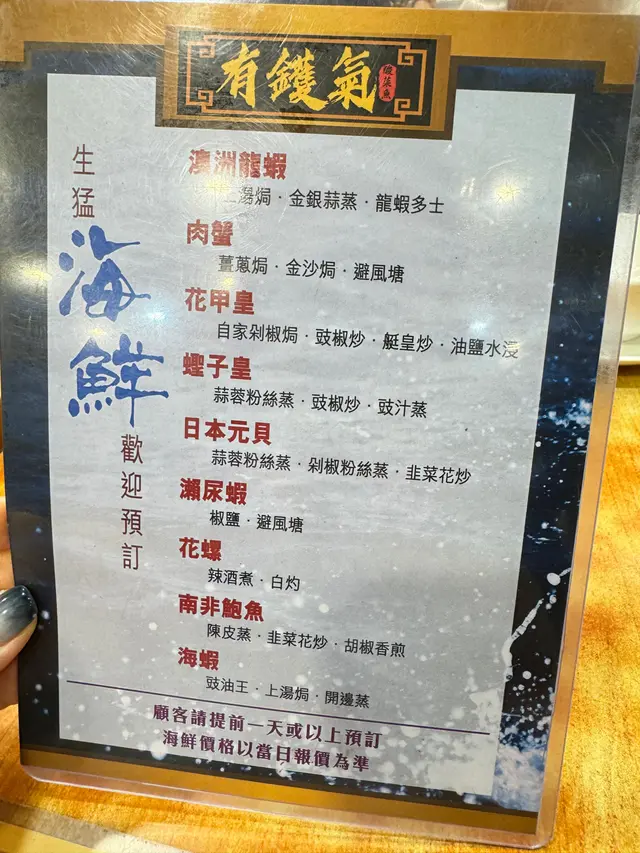 有鑊氣
酸菜魚
生猛
海鮮
歡迎預訂
澳洲龍蝦
上湯焗 · 金銀蒜蒸 · 龍蝦多士
肉蟹
薑蔥焗 · 金沙焗 · 避風塘
花甲皇
自家剁椒焗 · 豉椒炒 · 艇皇炒 · 油鹽水浸
蟶子皇
蒜蓉粉絲蒸 · 豉椒炒 · 豉汁蒸
日本元貝
蒜蓉粉絲蒸 · 剁椒粉絲蒸 · 韭菜花炒
瀨尿蝦
椒鹽 · 避風塘
花螺
辣酒煮 · 白灼
南非鮑魚
陳皮蒸 · 韭菜花炒 · 胡椒香煎
海蝦
豉油王 · 上湯焗 · 開邊蒸
顧客請提前一天或以上預訂
海鮮價格以當日報價為準